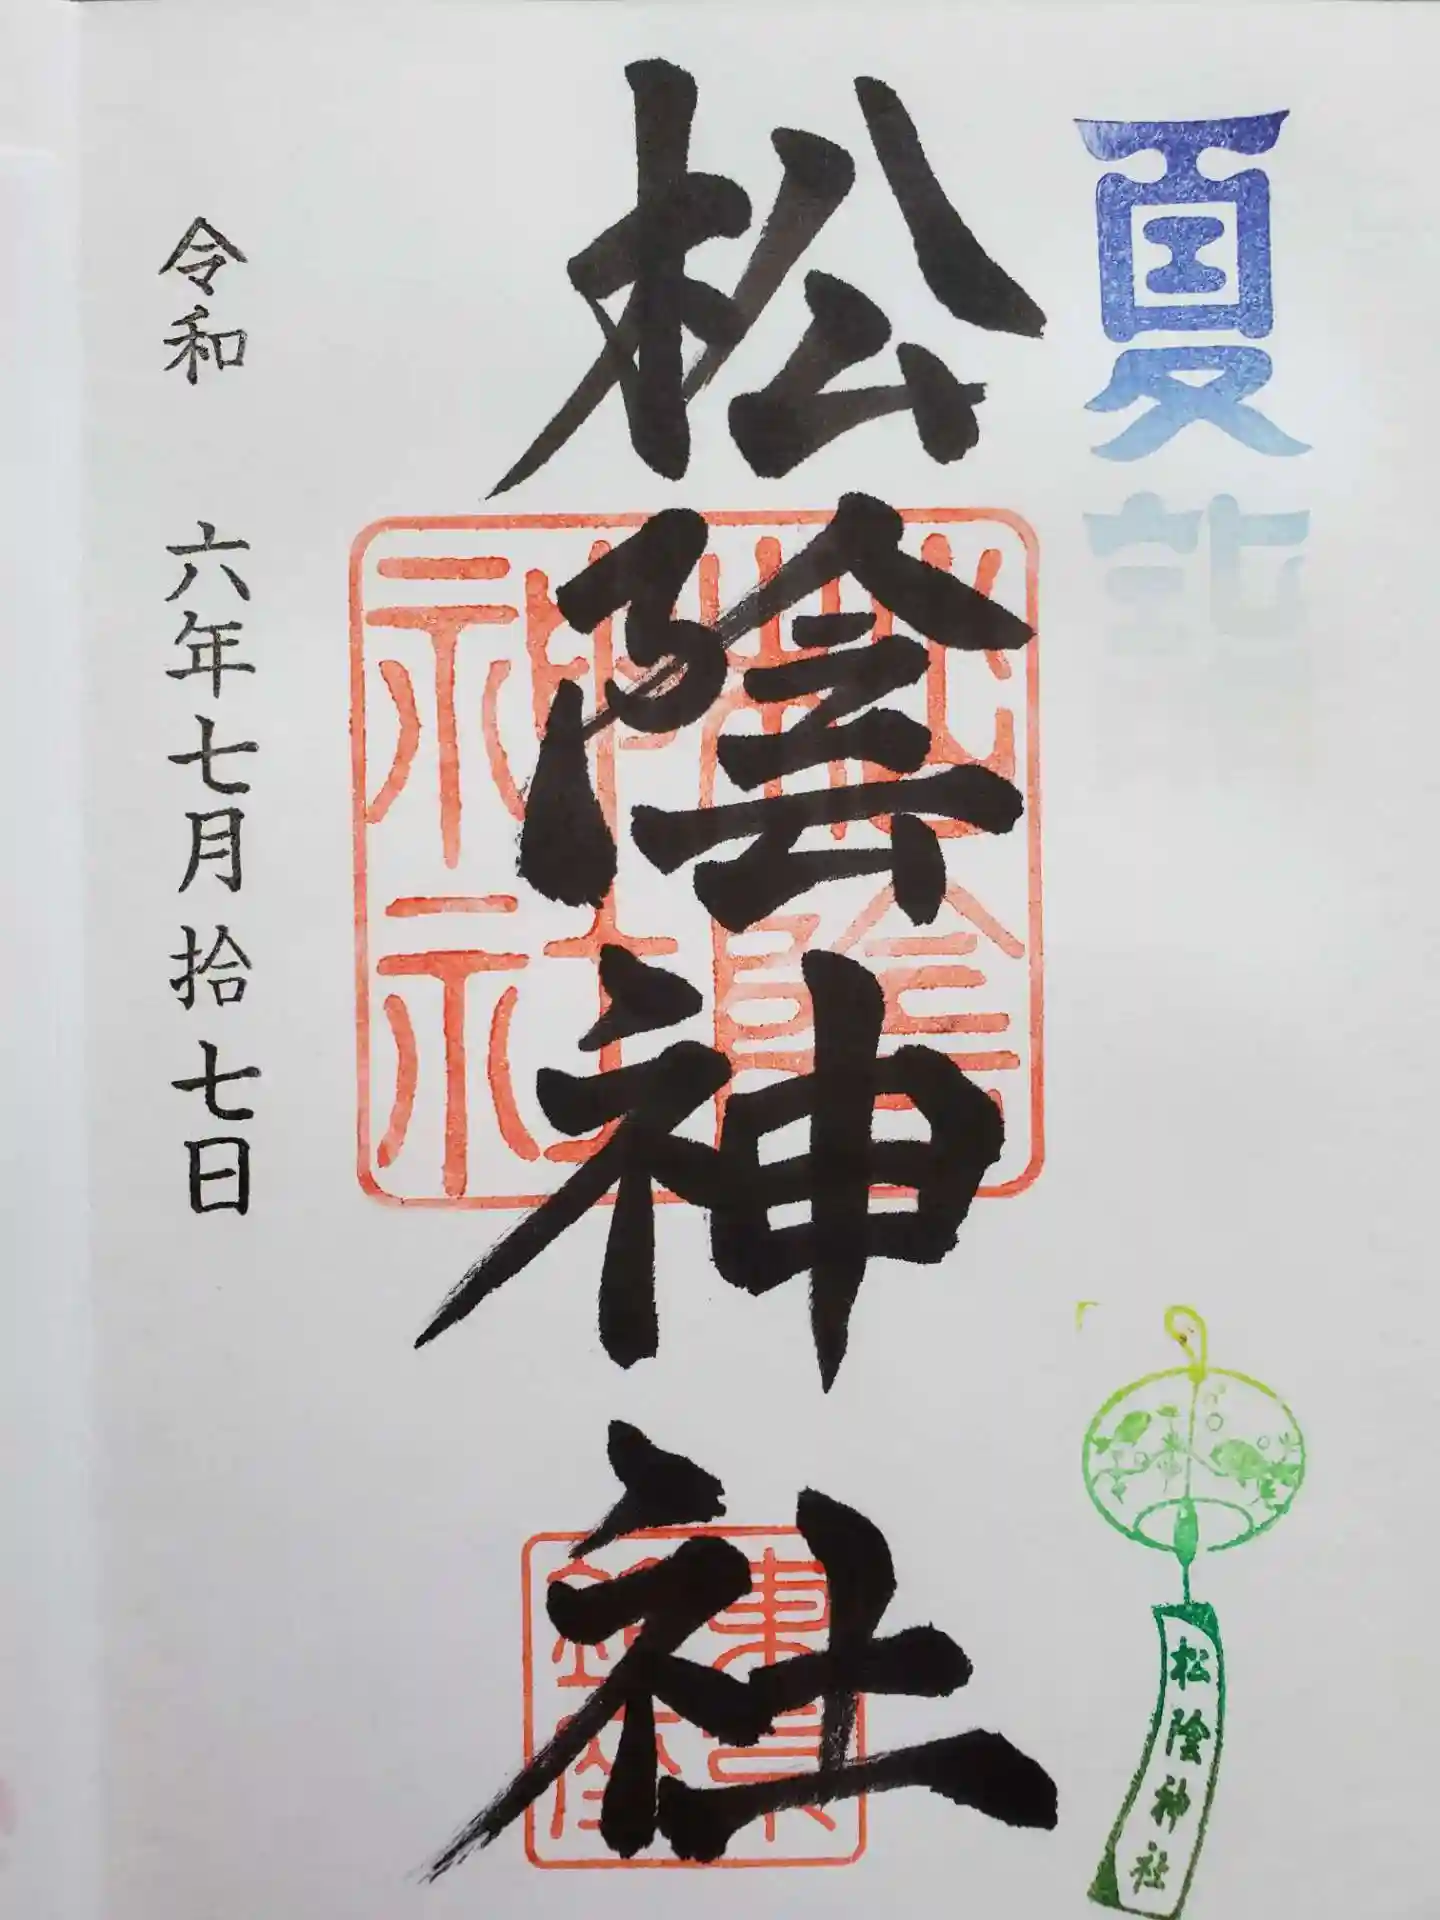 夏詣
松陰神社
松陰
神社
令和 六年七月拾七日
松陰神社